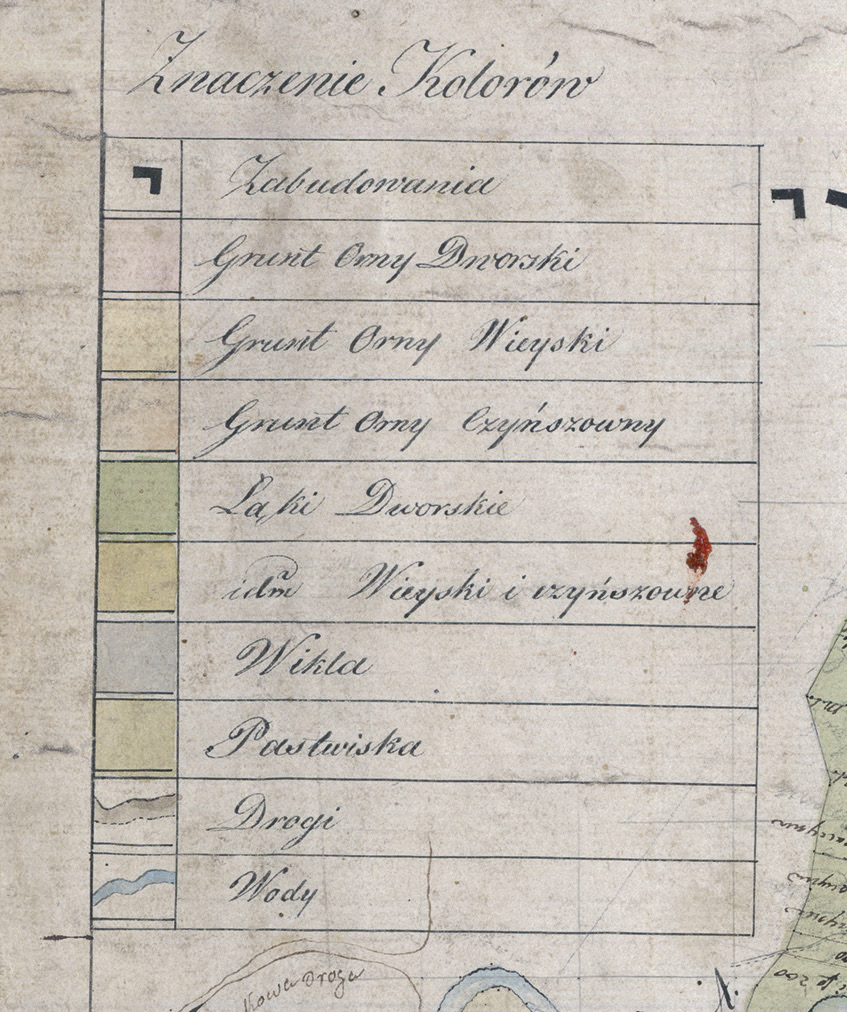 Znaczenie Kolorów
Zabudowania
Grunt Orny Dworski
Grunt Orny Wieyski
Grunt Orny Czyńszowny
Łąki Dworskie
idm̃ Wieyski i czyńszowne
Wikla
Pastwiska
Drogi
Wody
kowa Droga